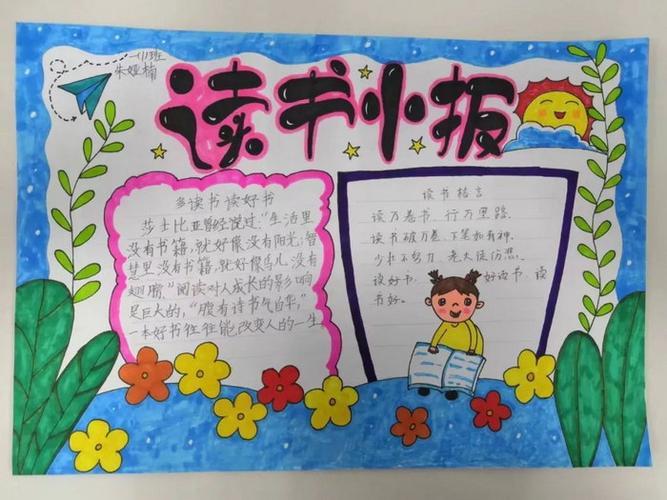 一(1)班
朱娅楠
读书小报
多读书 读好书
莎士比亚曾经说过:"生活里
没有书籍,就好像没有阳光;智
慧里没有书籍,就好像鸟儿没有
翅膀."阅读对人成长的影响
是巨大的,"腹有诗书气自华,"
一本好书往往能改变人的一生
读书格言
读万卷书,行万里路.
读书破万卷,下笔如有神.
少壮不努力,老大徒伤悲.
读好书, 好读书,读
书好.